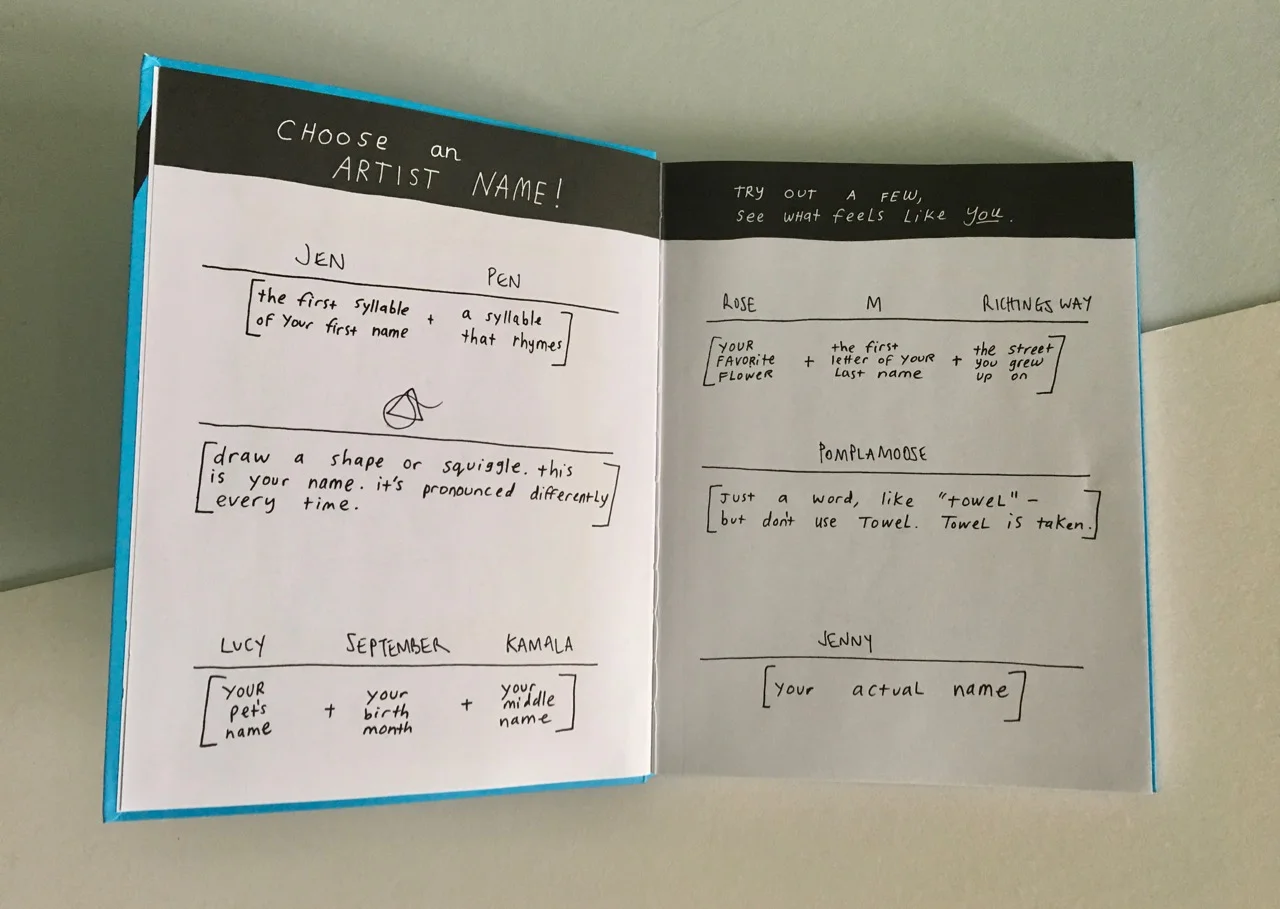 CHOOSE an
ARTIST NAME!
JEN PEN
the first syllable of your first name + a syllable that rhymes
draw a shape or squiggle. this
is your name. it's pronounced differently
every time.
LUCY SEPTEMBER KAMALA
YOUR pet's name + your birth month + your middle name
TRY OUT A FEW,
see what feels like you.
ROSE M RICHINGS WAY
YOUR FAVORITE FLOWER + the first letter of your last name + the street you grew up on
POMPLAMOOSE
Just a word, like "towel" –
but don't use Towel. Towel is taken.
JENNY
your actual name